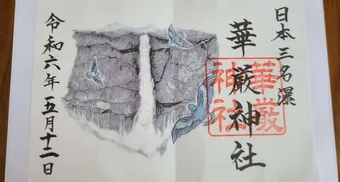 日本三名瀑
華厳神社
華厳神社
令和六年五月十二日